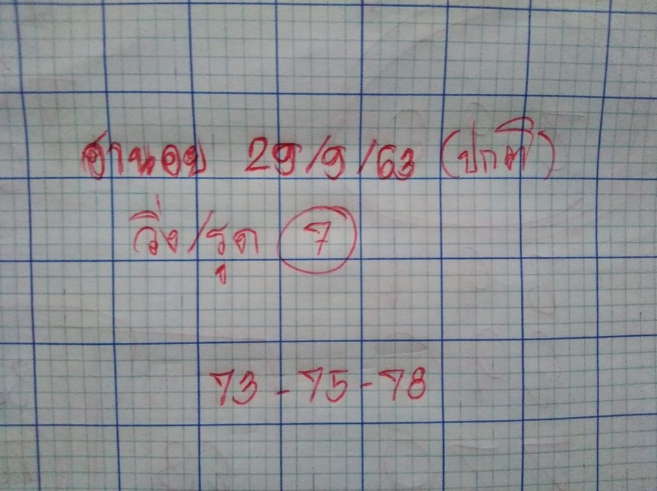 ฮานอย 29/9/63 (ปกติ)
วิ่ง/รูด 7
73-75-78